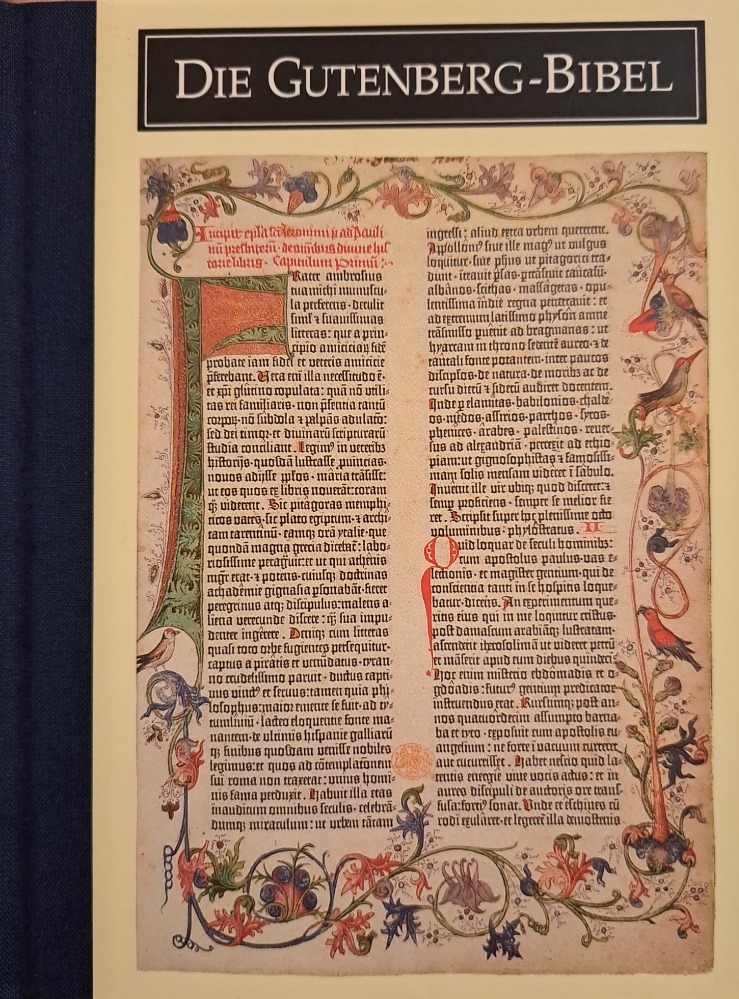 DIE GUTENBERG-BIBEL
Incipit epl̃a sc̃i Jeronimi p̃ ad Pauli
nũ presbiterũ · de om̃ibus diuine his
torie libris · Capitulum Primũ :·
Frater ambrosius
tua michi munuscu-
la perferens · detulit
simł ⁊ suauissimas
litteras : que a prin-
cipio amiciciaȝ fidē
probate iam fidei et veteris amicicie
p̃ferebant. Uera eni illa necessitudo ē ·
et xp̃i glutino copulata : quā nō utili-
tas rei familiaris · non p̃sentia tantū
corpoȝ · nō subdola ⁊ palpās adulatō :
sed dei timor · et diuinaȝ scripturarū
studia conciliant. Legim⁹ in veteribȝ
historijs · quosdā lustrasse ꝓuincias ·
nouos adijsse ppl̃os · maria trāsisse :
ut eos quos ex libris nouerāt : coram
qȝ viderent. Sic pitagoras memphi-
ticos vates · sic plato egiptum · ⁊ archi-
tam tarentinū · eamqȝ orā ytalie · que
quondā magna grecia dicebat̃ : labo-
riosissime peragrauit : et ut qui athenis
mgr̃ erat · ⁊ potens · cuiusqȝ doctrinas
achademie gignasia p̃sonabāt · fieret
peregrinus atqȝ discipulus : malens a-
liena verecunde discere : qȝ sua impu-
denter ingerere. Deniqȝ cum litteras
quasi toto orbe fugientes persequitur ·
captus a piratis et venūdatus · tyran-
no crudelissimo paruit · ductus capti-
uus vinct⁹ et seruus : tamen quia phi-
losophus : maior emente se fuit · ad ty-
tumliuiū · lacteo eloquentie fonte ma-
nantem · de ultimis hispanie galliarū
qȝ finibus quosdam venisse nobiles
legimus : et quos ad cōtemplatōnem
sui roma non traxerat : unius homi-
nis fama perduxit. Habuit illa etas
inauditum omnibus seculis · celebrā-
dumqȝ miraculum : ut urbem tātam
ingressi : aliud extra urbem quererent.
Apollonĩ⁹ siue ille mag⁹ ut vulgus
loquitur · siue ph̃us ut pitagorici tra-
dunt · ītrauit p̃sas · p̃trāsiuit caucasū ·
albanos · scithas · massagetas · opu-
lentissima indie regna penetrauit : et
ad extremum latissimo physon amne
trāsmisso puenit ad bragmanas : ut
hyarcam in throno sedētē aureo · ⁊ de
tantali fonte potantem · inter paucos
discipl̃os · de natura · de moribȝ ac de
cursu dierū ⁊ siderū audiret docentem.
Inde p elamitas · babilonios · chalde-
os · medos · assirios · parthos · syros ·
phenices · arabes · palestinos · reuer-
sus ad alexandriā · perrexit ad ethio-
piam : ut gignosophistas ⁊ famosissi-
mam solis mensam videret ī sabulo.
Inuenit ille vir ubiqȝ quod disceret : ⁊
semp proficiens · semper se melior fie-
ret. Scripsit super hoc plenissime octo
voluminibus · phylostratus. II
Quid loquar de seculi hominibȝ :
cum apostolus paulus · vas e-
lectionis · et magister gentium · qui de
conscientia tanti in se hospitis loque-
batur · dicens. An experimentum que-
ritis eius qui in me loquitur cristus.
post damascum arabiāqȝ lustratam ·
ascenderit iherosolimā ut videret petrū
et māserit apud eum diebus quindeci.
Hoc enim misterio ebdomadis et o-
gdoadis : futur⁹ gentium predicator
instruendus erat. Rursumqȝ post an-
nos quatuordecim assumpto barna-
ba et tyto · exposuit cum apostolis eu-
angelium : ne forte ī vacuum curreret
aut cucurrisset. Habet nescio quid la-
tentis energie viue vocis actus : et in
aures discipuli de auctoris ore trans-
fusa : forti⁹ sonat. Unde et eschineo cū
rodi exularet · et legeret̃ illa demostenis